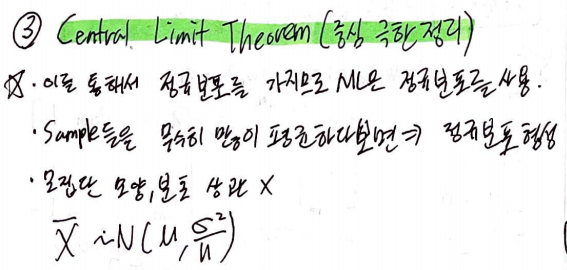 ③ Central Limit Theorem (중심 극한 정리)
☆ · 이를 통해서 정규분포를 가지므로 ML은 정규분포를 사용.
· Sample들을 무수히 많이 평균하다보면 ⇒ 정규분포 형성
· 모집단 모양, 분포 상관 X
X̄ ~ N(μ, σ²/n)